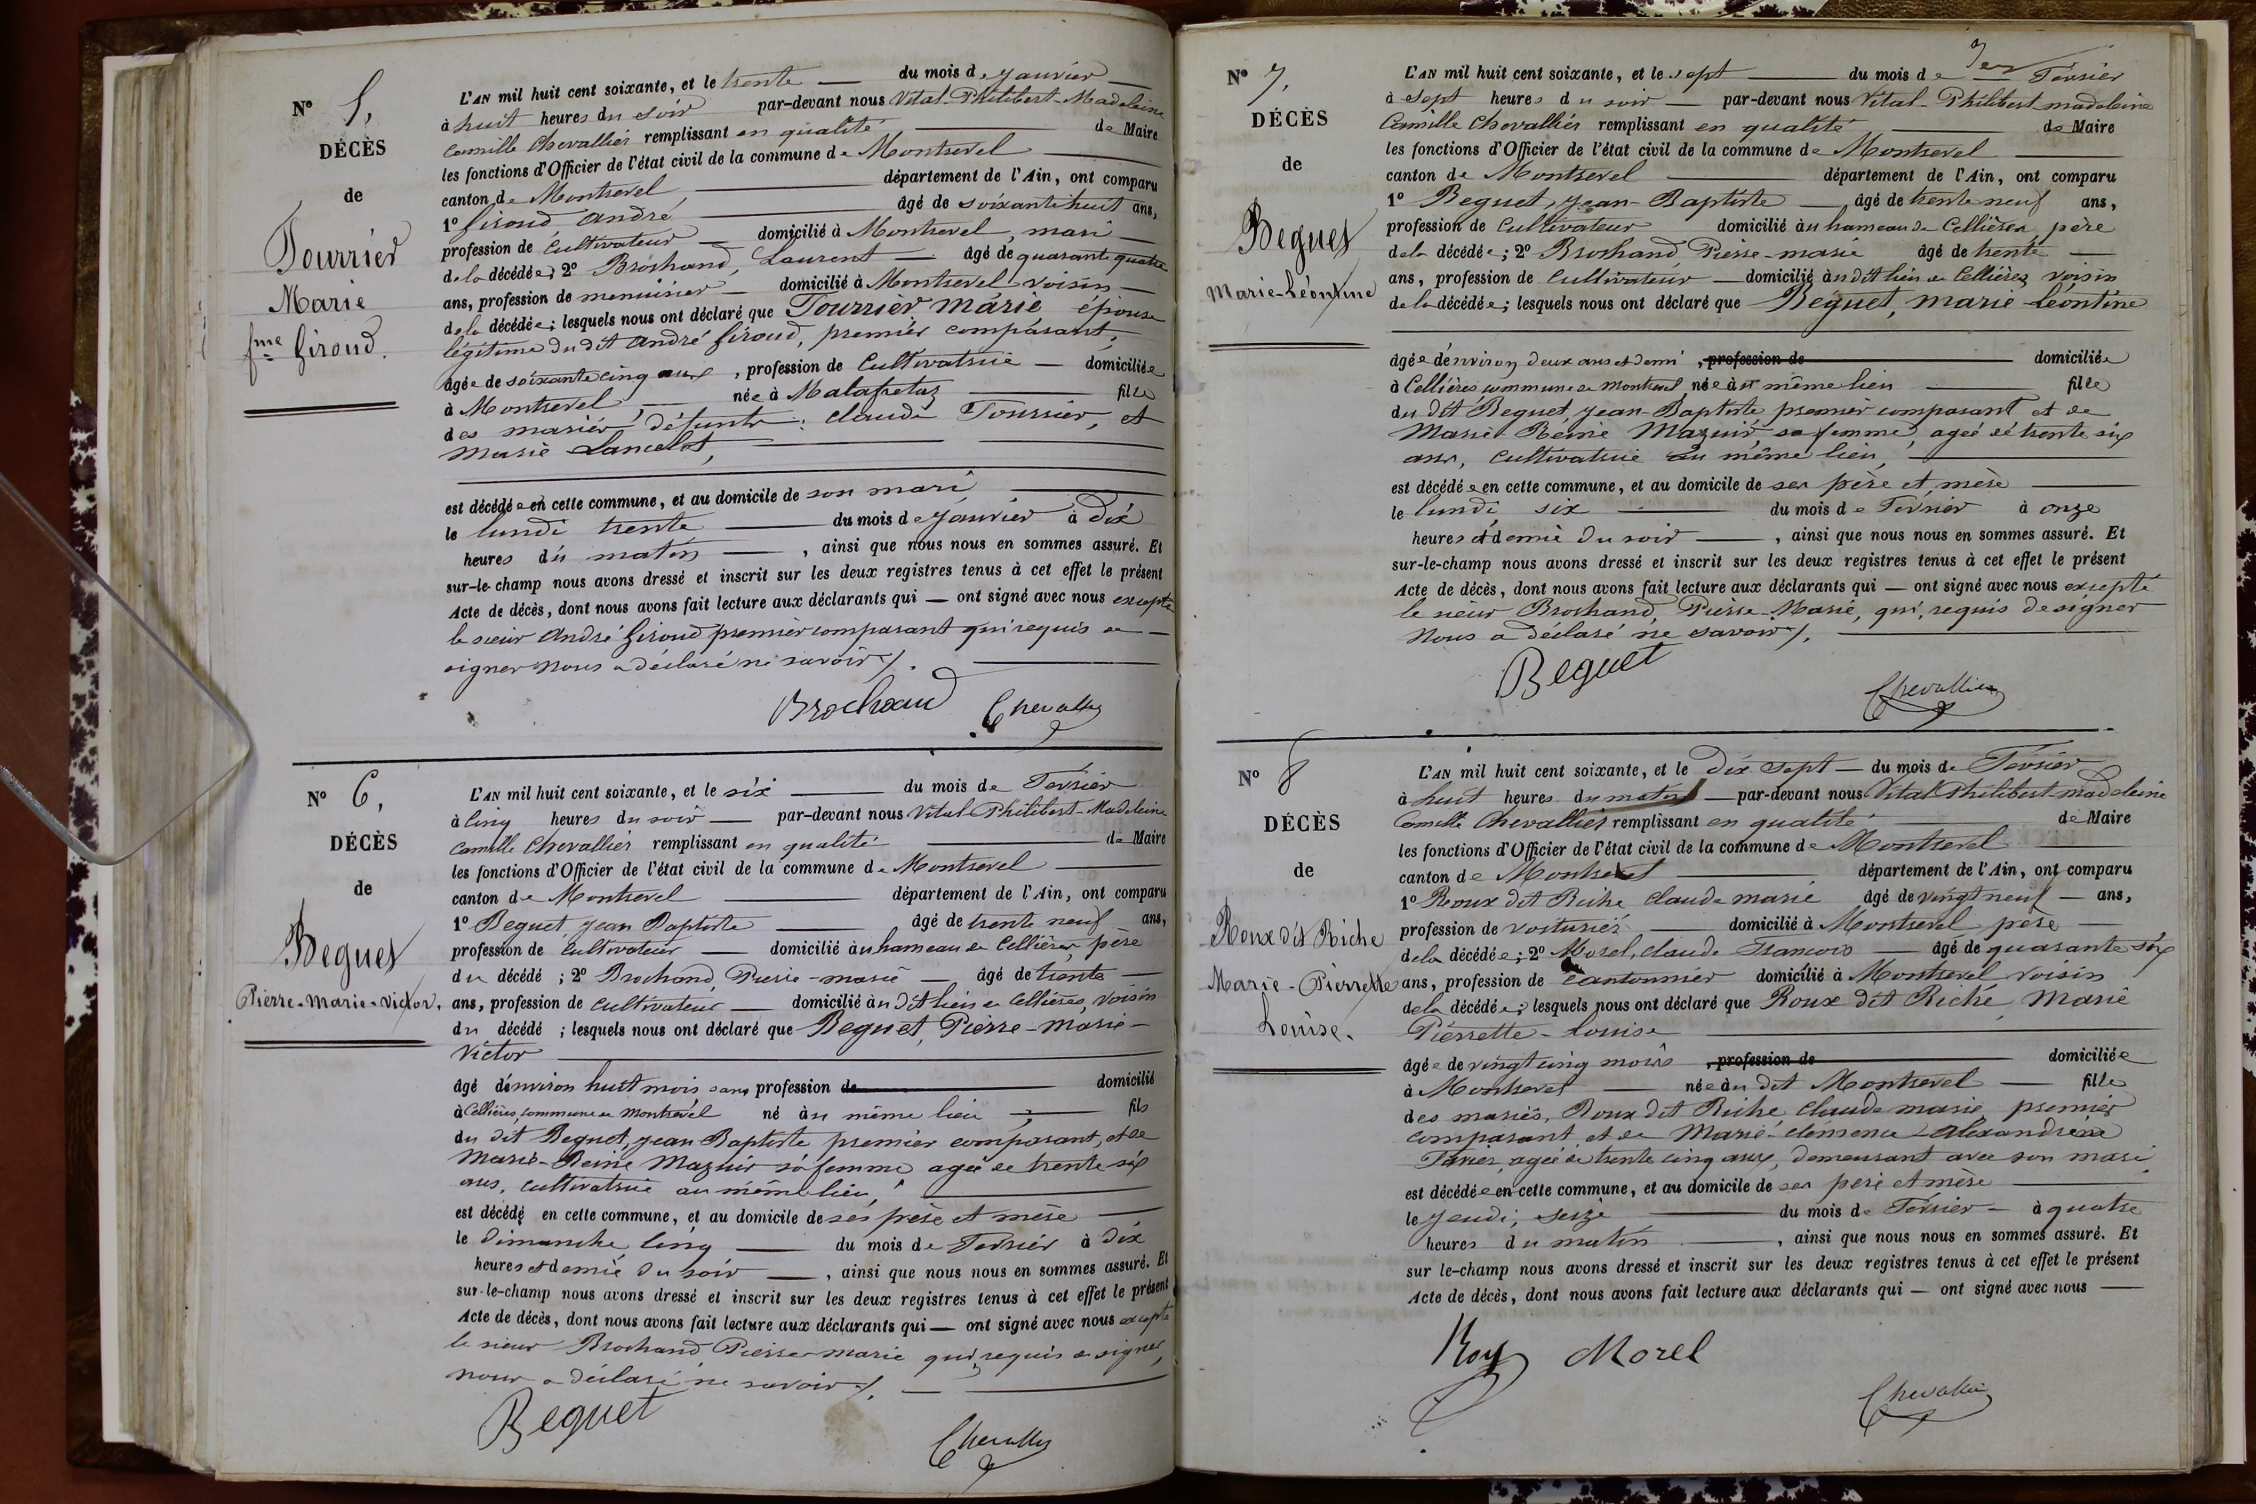 N° 5,
DÉCÈS
de
Tourrier
Marie
fme Giroud.
L'AN mil huit cent soixante, et le trente du mois de Janvier
à huit heures du soir par-devant nous Vital-Philibert-Madeleine
Camille Chevallier remplissant en qualité de Maire
les fonctions d'Officier de l'état civil de la commune de Montrevel
canton de Montrevel département de l'Ain, ont comparu
1° Giroud André âgé de soixante huit ans,
profession de Cultivateur domicilié à Montrevel, mari
de la décédée; 2° Brochand, Laurent âgé de quarante quatre
ans, profession de menuisier domicilié à Montrevel voisin
de la décédée; lesquels nous ont déclaré que Tourrier Marie épouse
légitime du dit André Giroud, premier comparant,
âgée de soixante cinq ans, profession de Cultivatrice domiciliée
à Montrevel, née à Malafretaz fille
des mariés défunts: Claude Tourrier, et
Marie Lancelot,
est décédée en cette commune, et au domicile de son mari
le lundi trente du mois de Janvier à dix
heures du matin, ainsi que nous nous en sommes assuré. Et
sur-le-champ nous avons dressé et inscrit sur les deux registres tenus à cet effet le présent
Acte de décès, dont nous avons fait lecture aux déclarants qui — ont signé avec nous excepté
le sieur André Giroud premier comparant qui requis de
signer nous a déclaré ne savoir /.
Brochand Chevallier
N° 6,
DÉCÈS
de
Beguet
Pierre-Marie-Victor,
L'AN mil huit cent soixante, et le six du mois de Février
à cinq heures du soir par-devant nous Vital-Philibert-Madeleine
Camille Chevallier remplissant en qualité de Maire
les fonctions d'Officier de l'état civil de la commune de Montrevel
canton de Montrevel département de l'Ain, ont comparu
1° Beguet Jean Baptiste âgé de trente neuf ans,
profession de Cultivateur domicilié au hameau de Cellières, père
du décédé; 2° Brochand, Pierre-Marie âgé de trente
ans, profession de Cultivateur domicilié au dit lieu de Cellières, voisin
du décédé; lesquels nous ont déclaré que Beguet, Pierre-Marie-
Victor
âgé d'environ huit mois sans profession de domicilié
à Cellières, commune de Montrevel né au même lieu fils
du dit Beguet, Jean Baptiste premier comparant, et de
Marie-Reine Mazuir sa femme agée de trente six
ans, cultivatrice au même lieu,
est décédé en cette commune, et au domicile de ses père et mère
le Dimanche cinq du mois de Février à dix
heures et demie du soir, ainsi que nous nous en sommes assuré. Et
sur-le-champ nous avons dressé et inscrit sur les deux registres tenus à cet effet le présent
Acte de décès, dont nous avons fait lecture aux déclarants qui — ont signé avec nous excepté
le sieur Brochand Pierre-Marie qui, requis de signer,
nous a déclaré ne savoir /.
Beguet Chevallier
N° 7,
DÉCÈS
de
Beguet
Marie-Léontine
L'AN mil huit cent soixante, et le sept du mois de Février
à sept heures du soir par-devant nous Vital-Philibert madeleine
Camille Chevallier remplissant en qualité de Maire
les fonctions d'Officier de l'état civil de la commune de Montrevel
canton de Montrevel département de l'Ain, ont comparu
1° Beguet, Jean-Baptiste âgé de trente neuf ans,
profession de Cultivateur domicilié au hameau de Cellières père
de la décédée; 2° Brochand Pierre-marie âgé de trente
ans, profession de Cultivateur domicilié au dit lieu de Cellières voisin
de la décédée; lesquels nous ont déclaré que Beguet, marie-léontine
âgée d'environ deux ans et demi, profession de domiciliée
à Cellières commune de Montrevel, née au même lieu fille
du dit Beguet, Jean-Baptiste premier comparant et de
Marie-Reine Mazuir, sa femme, agée de trente six
ans, cultivatrice au même lieu,
est décédée en cette commune, et au domicile de ses père et mère
le lundi six du mois de Février à onze
heures et demie du soir, ainsi que nous nous en sommes assuré. Et
sur-le-champ nous avons dressé et inscrit sur les deux registres tenus à cet effet le présent
Acte de décès, dont nous avons fait lecture aux déclarants qui — ont signé avec nous excepté
le sieur Brochand, Pierre-Marie, qui, requis de signer
nous a déclaré ne savoir /.
Beguet Chevallier
N° 8
DÉCÈS
de
Roux dit Riche
Marie-Pierrette
Louise.
L'AN mil huit cent soixante, et le dix sept du mois de Février
à huit heures du matin par-devant nous Vital Philibert-madeleine
Camille Chevallier remplissant en qualité de Maire
les fonctions d'Officier de l'état civil de la commune de Montrevel
canton de Montrevel département de l'Ain, ont comparu
1° Roux dit Riche Claude marie âgé de vingt neuf ans,
profession de voiturier domicilié à Montrevel père
de la décédée; 2° Morel, Claude François âgé de quarante six
ans, profession de Cantonnier domicilié à Montrevel voisin
de la décédée; lesquels nous ont déclaré que Roux dit Riche, Marie
Pierrette-Louise
âgée de vingt cinq mois, profession de domiciliée
à Montrevel née au dit Montrevel fille
des mariés, Roux dit Riche Claude marie, premier
comparant et de Marie-clémence-alexandrine
agée de trente cinq ans, demeurant avec son mari
est décédée en cette commune, et au domicile de ses père et mère
le Jeudi, seize du mois de Février à quatre
heures du matin, ainsi que nous nous en sommes assuré. Et
sur le-champ nous avons dressé et inscrit sur les deux registres tenus à cet effet le présent
Acte de décès, dont nous avons fait lecture aux déclarants qui — ont signé avec nous
Roux Morel
Chevallier